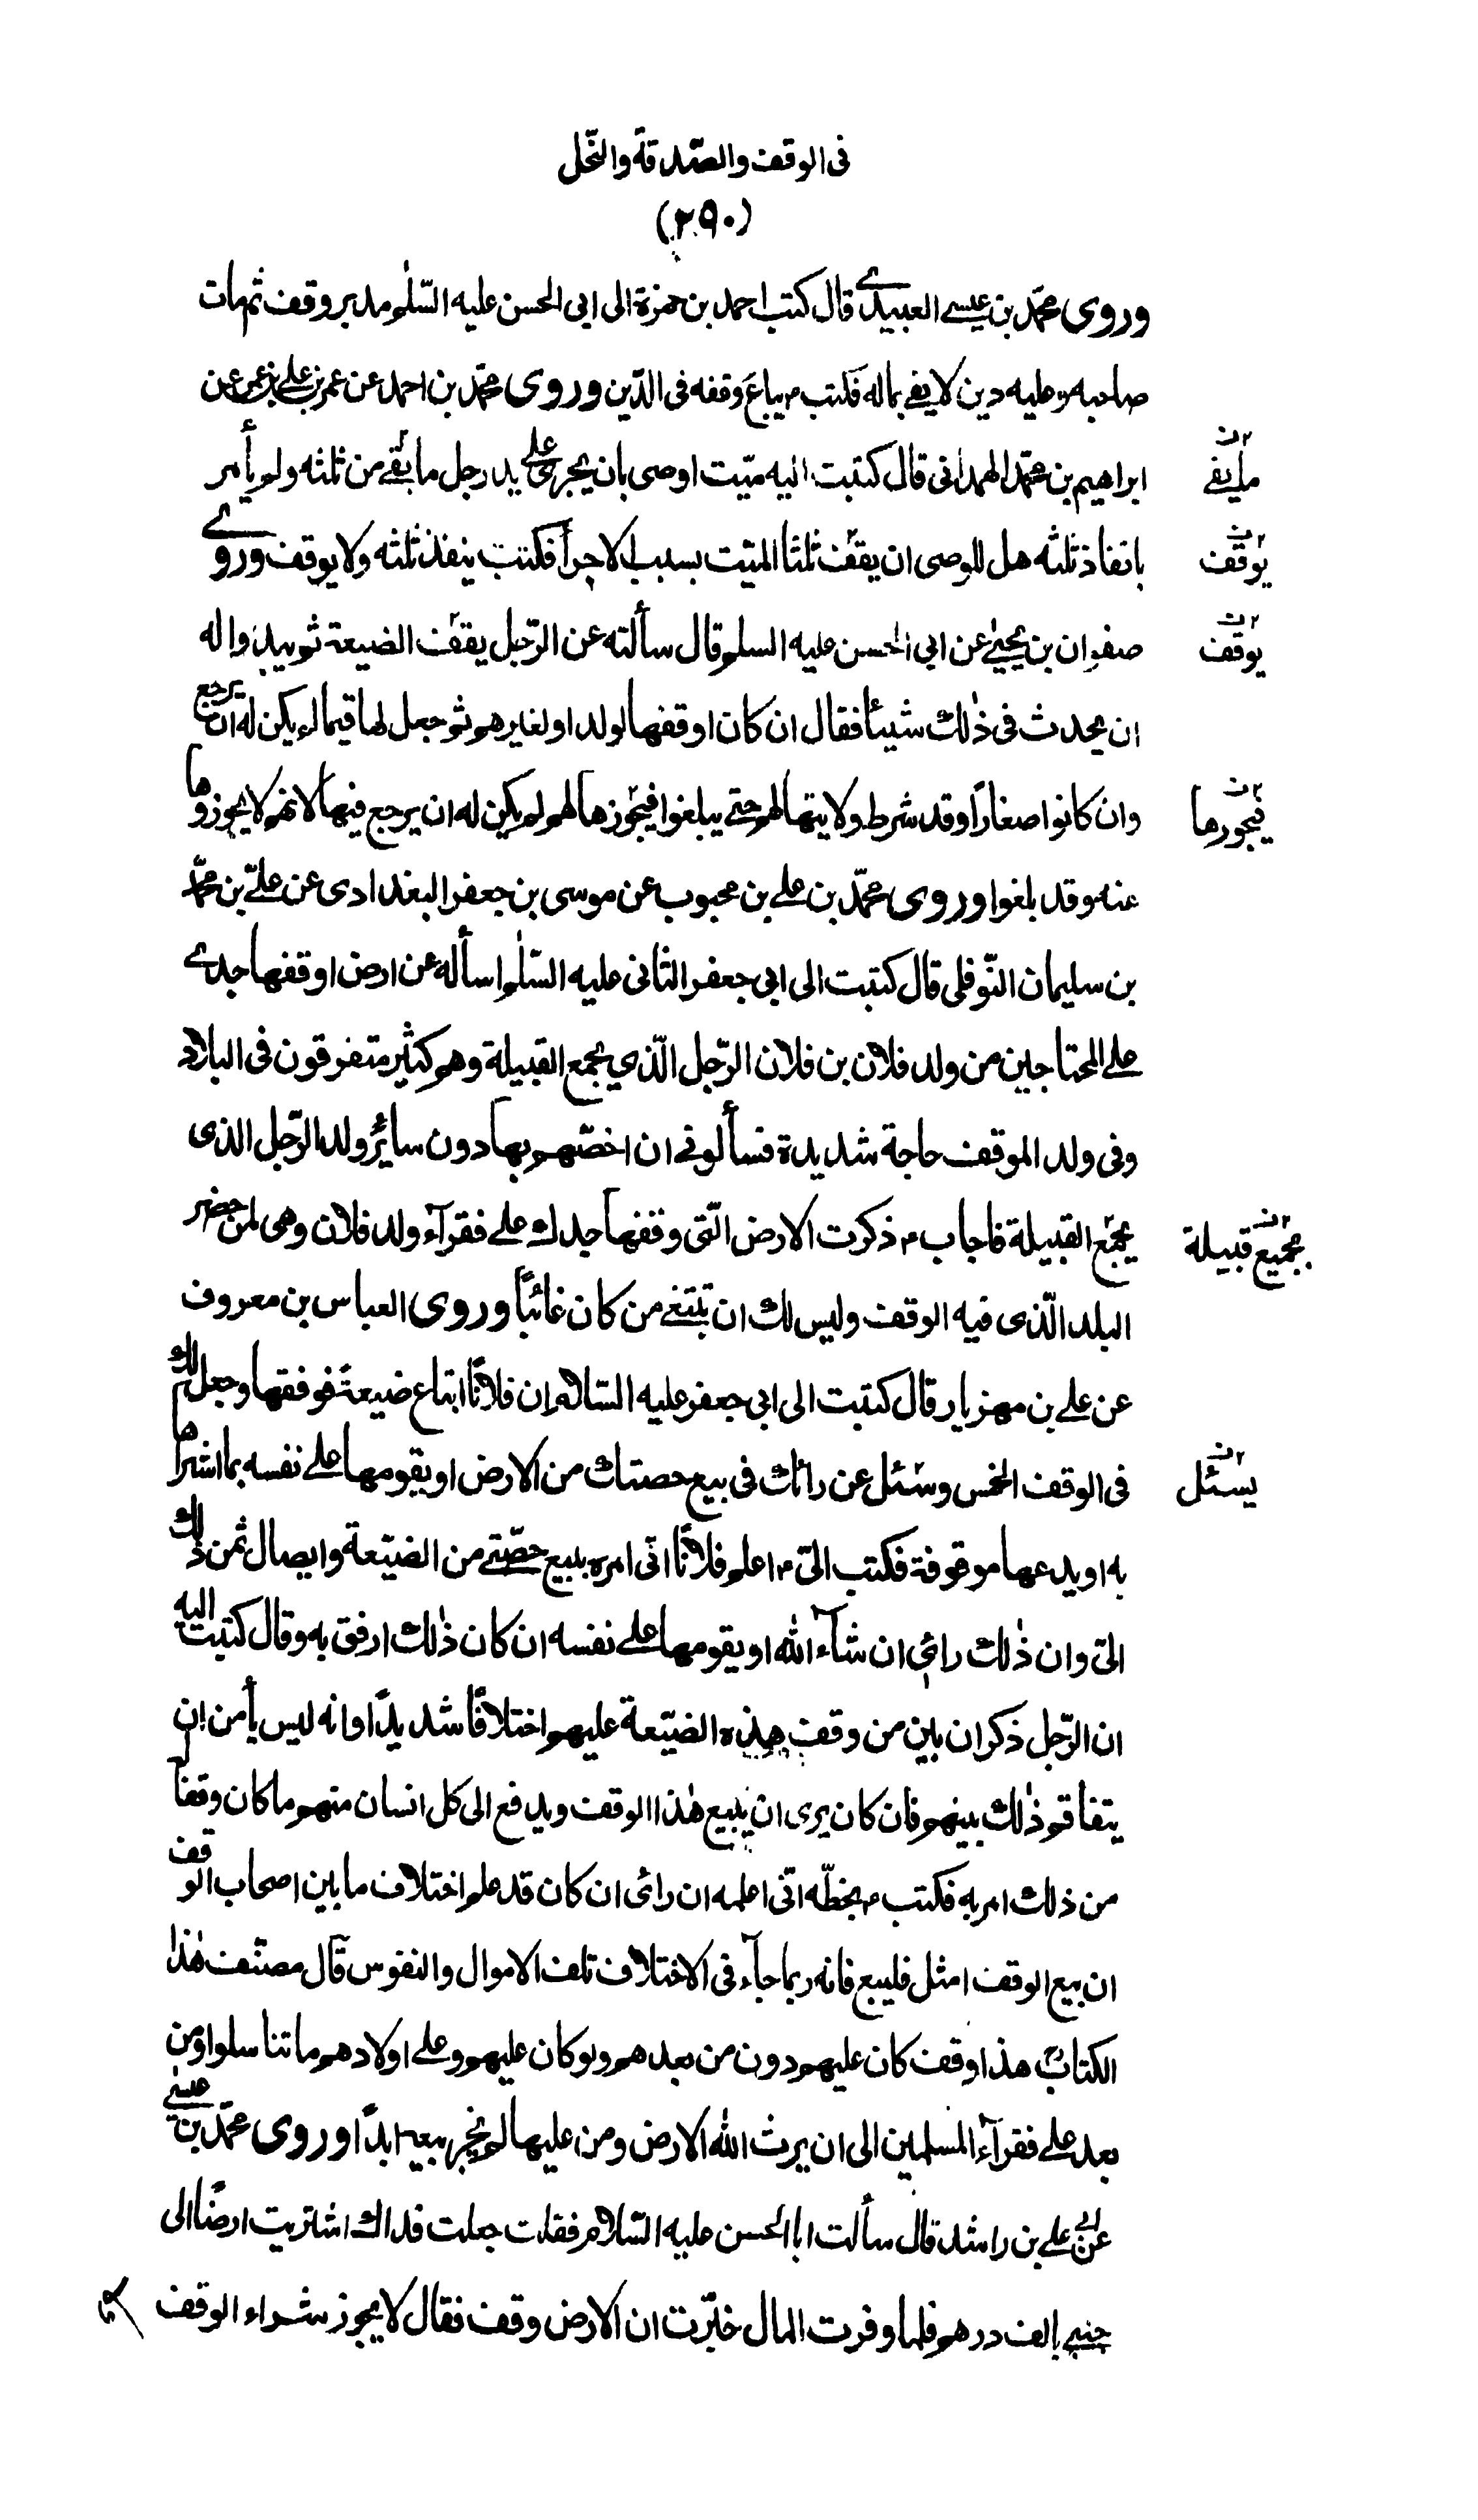 فى الوقف والصّدقة والنّحل
(٢٩٠)
وروى محمّد بن عيسے العبيدے قال كتب احمد بن حمزة الى ابى الحسن عليه السّلٰم مدبر وقف ثم مات
صاحبه وعليه دين لا يفے بماله فكتب ع يباع وقفه فى الدّين وروى محمّد بن احمد عن عمر بن علے بن عمر عن
ابراهيم بن محمّد الهمدانى قال كتبت اليه ميّت اوصى بان يجرى علے يد رجل ما بقے من ثلثه ولم يأمر
ما يفے ٢ن
بانفاذ ثلثه هل للوصى ان يقف ثلث الميّت بسبب الاجراء فكتب ينفذ ثلثه ولا يوقف وروے
يوقف ٢ن
صفوان بن يحيٰى عن ابى الحسن عليه السلم قال سألته عن الرّجل يقف الضيعة ثم يبدو له
يوقف ٢ن
ان يحدث فى ذٰلك شيئا فقال ان كان اوقفها لولد او لغيرهم ثم جعل لها قيما لم يكن له ان يرجع
وان كانوا صغاراً وقد شرط ولايتها لهم حتے يبلغوا فيحوزها لهم لم يكن له ان يرجع فيها لانهم لا يحوزوها
فيحوزها ٢ن
عنه وقد بلغوا وروى محمّد بن علے بن محبوب عن موسى بن جعفر البغدادى عن علے بن محمّد
بن سليمان النّوفلى قال كتبت الى ابى جعفر الثانى عليه السّلٰم اسأله عن ارض اوقفها جدے
علے المحتاجين من ولد فلان بن فلان الرّجل الّذي يجمع القبيلة وهم كثير متفرقون فى البلاد
وفى ولد الموقف حاجة شديدة فسألونے ان اخصّهم بها دون سائر ولد الرّجل الذى
يجمع القبيلة فاجاب ع ذكرت الارض الّتى وقفها جدك علے فقرآء ولد فلان وهى لمن حضر
بجميع قبيلة ٢ن
البلد الّذى فيه الوقف وليس لك ان تبتغے من كان غائباً وروى العباس بن معروف
عن علے بن مهزيار قال كتبت الى ابى جعفر عليه السّلام ان فلاناً ابتاع ضيعةً فوقفها وجعل لك
فى الوقف الخمس وسئل عن رائك فى بيع حصتك من الارض او يقومها علے نفسه بما اشتراها
يسئل ٢ن
به او يدعها موقوفة فكتب الىّ ع اعلم فلاناً انّى امره ببيع حصّتے من الضيّعة وايصال ثمن ذٰلك
الىّ وان ذٰلك رائى ان شآء الله او يقومها علے نفسه ان كان ذٰلك ارفق به وقال كتبت اليه
ان الرّجل ذكر ان بين من وقف هذه الضيّعة عليهم اختلافاً شديداً وانه ليس يأمن ان
يتفاقم ذٰلك بينهم فان كان يرى ان يبيع هٰذا الوقف ويدفع الى كل انسان منهم ما كان وقفاً
من ذلك امر به فكتب ع بخطّه انّى اعلمه ان رائى ان كان قد علم اختلاف ما بين اصحاب الوقف
ان بيع الوقف امثل فليبع فانه ربما جآء فى الاختلاف تلف الاموال والنفوس قال مصنّف هٰذا
الكتاب هذا وقف كان عليهم دون من بعدهم ولو كان عليهم وعلے اولادهم ما تناسلوا ومن
بعد علے فقرآء المسلمين الى ان يرث الله الارض ومن عليها لم يجز بيعه ابداً وروى محمّد بن عيسے
عن ابے علے بن راشد قال سألت ابا الحسن عليه السّلام فقلت جعلت فداك اشتريت ارضاً الى
جنبے بالف درهم فلما وفرت المال خبّرت ان الارض وقف فقال لا يجوز شراء الوقف